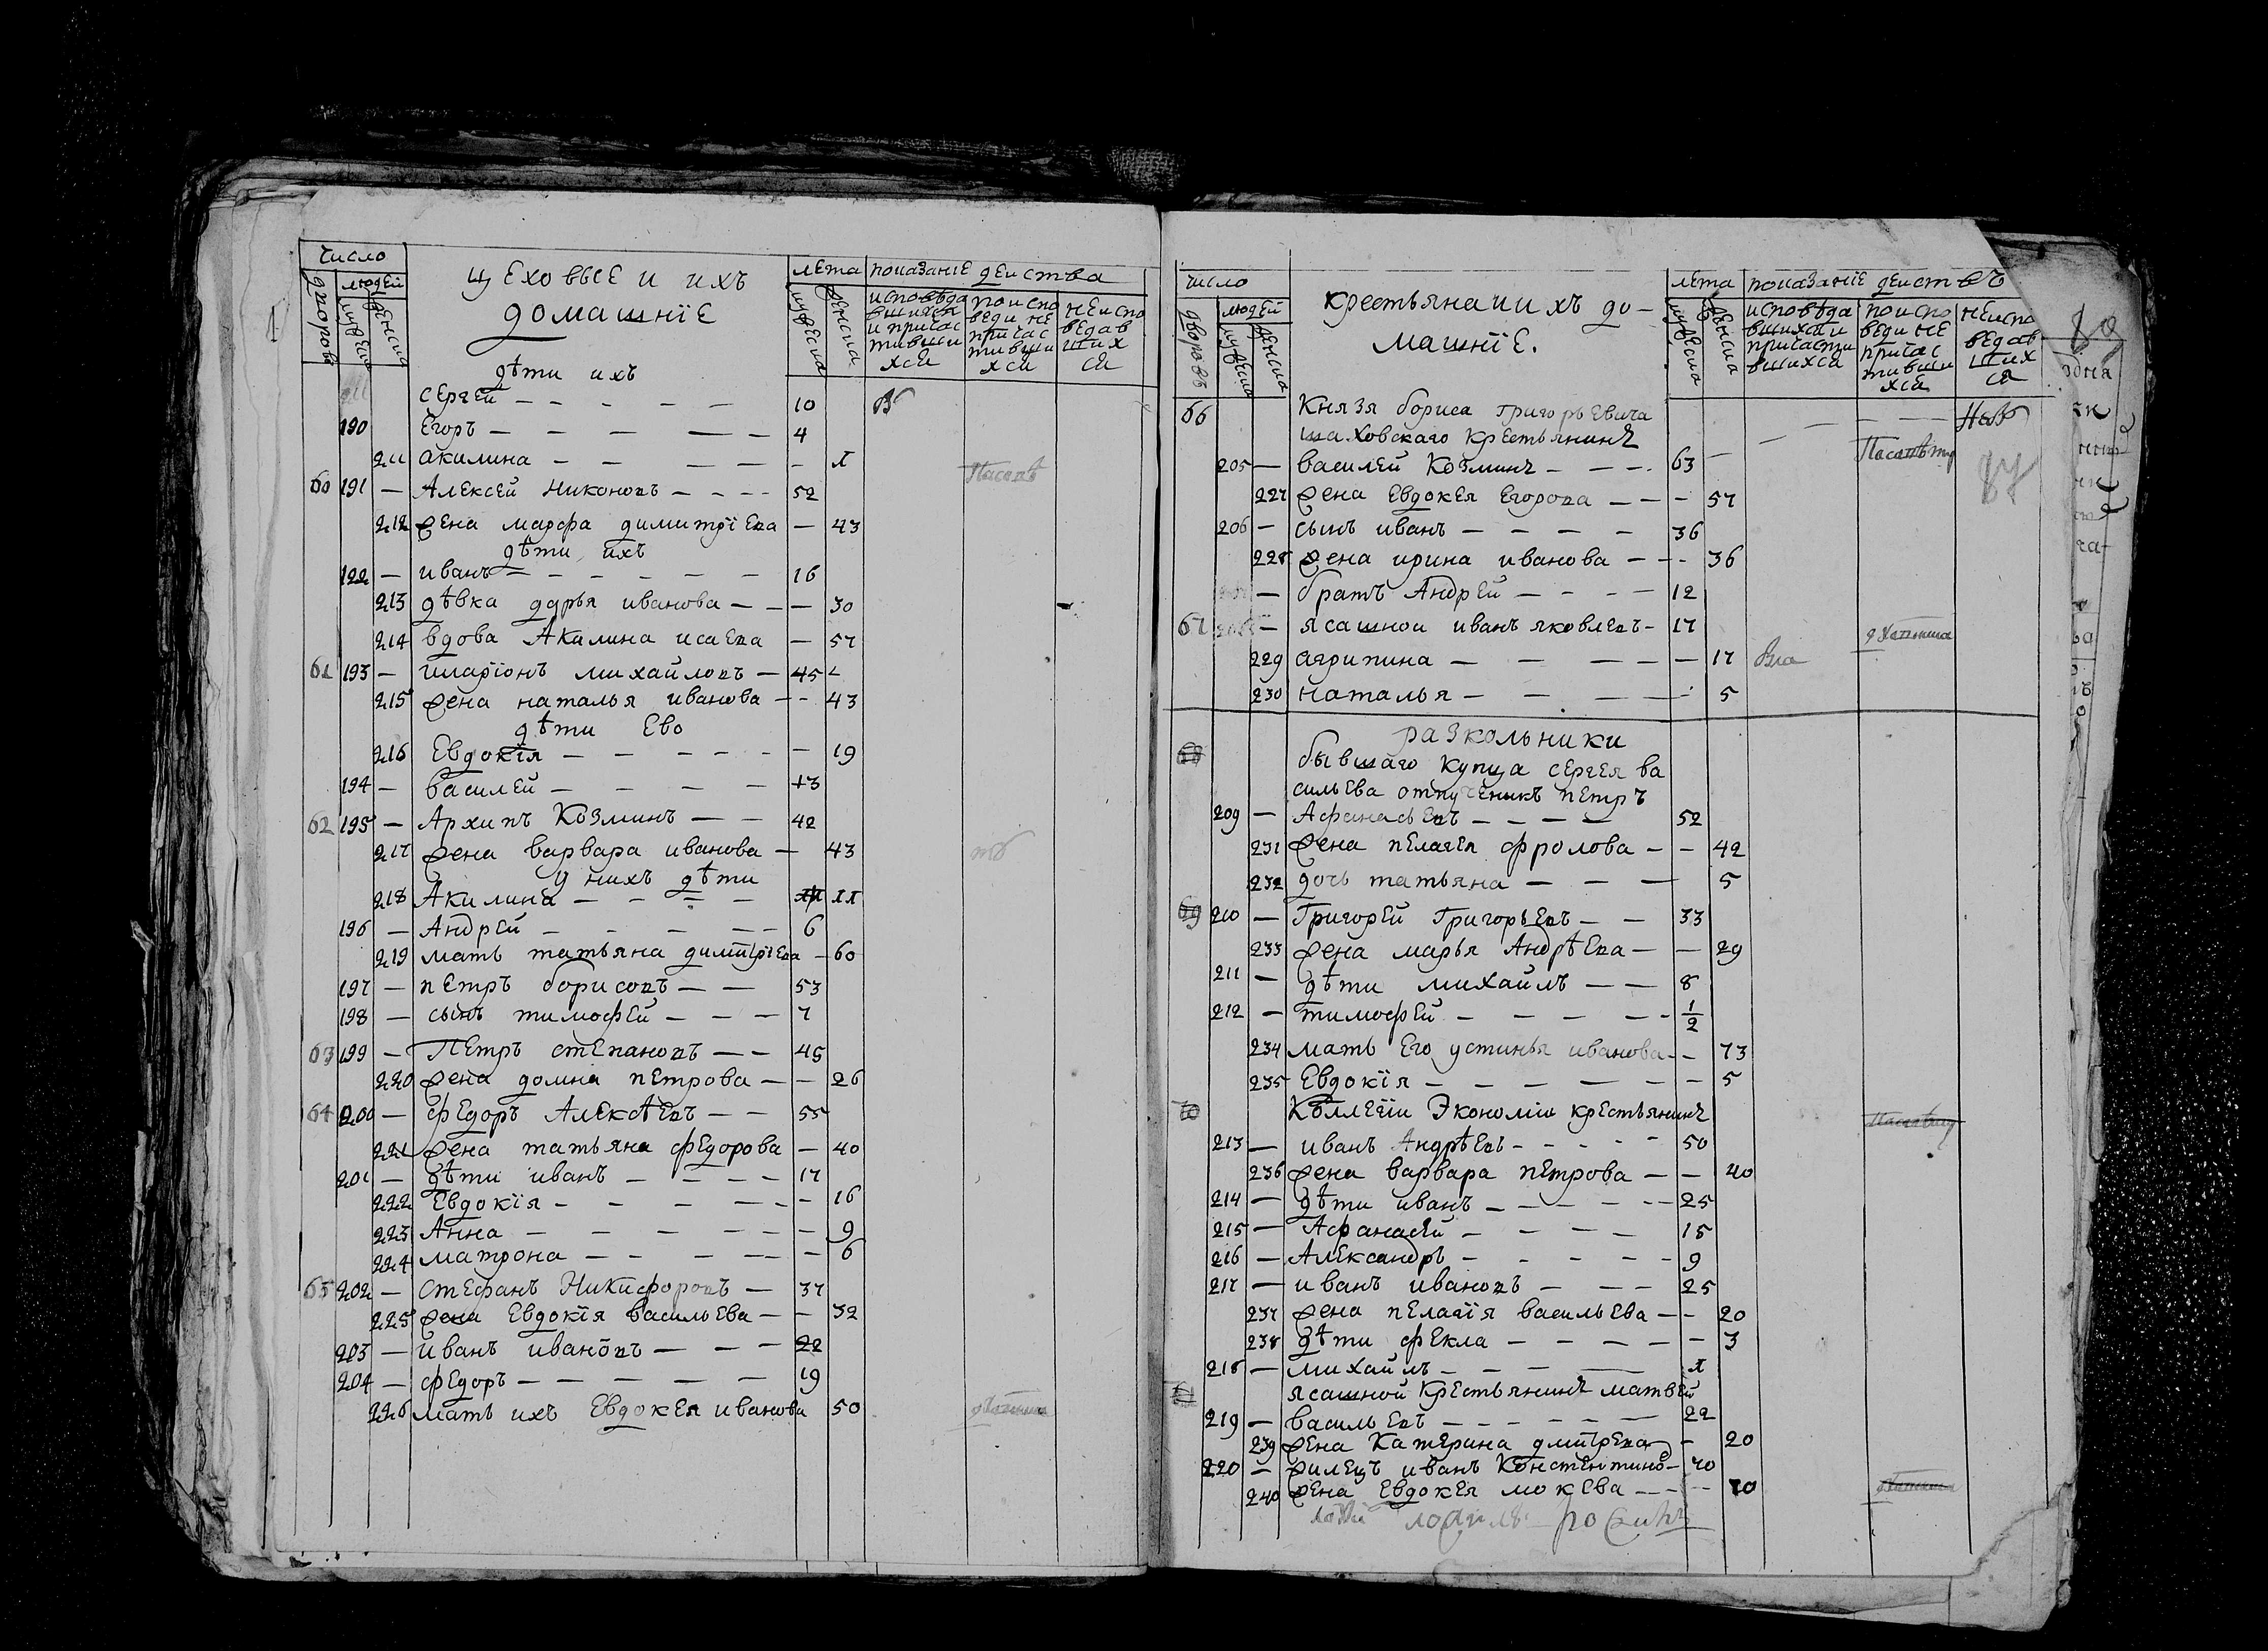 число
людей
дворовъ
мужеска
женска
цеховые и ихъ
домашніе
лета
показаніе действа
мужеска
женска
исповѣда
вшихся
и причас
тивши
хся
по испо
веди не
причас
тивши
хся
не испо
ведав
ших
ся
дѣти ихъ
сергей — 10
190 Егоръ — 4
211 акилина — 1
60 191 — Алексей Никоновъ — 52
212 жена марфа димитріева — 43
дѣти ихъ
122 — иванъ — 16
213 дѣвка дарья иванова — 30
214 вдова Акилина исаева — 57
61 193 — иларіонъ михайловъ — 45
215 жена наталья иванова — 43
дѣти Ево
216 Евдокія — 19
194 — василей — 13
62 195 — Архипъ Козминъ — 42
217 жена варвара иванова — 43
у нихъ дѣти
218 Акилина — 11
196 — Андрей — 6
219 мать татьяна димитріева — 60
197 — петръ борисовъ — 53
198 — сынъ тимофей — 7
63 199 — Петръ степановъ — 45
220 жена домна петрова — 26
64 200 — федоръ Алексѣевъ — 55
221 жена татьяна федорова — 40
201 — дѣти иванъ — 17
222 Евдокія — 16
223 Анна — 9
224 матрона — 6
65 202 — стефанъ Никифоровъ — 37
225 жена Евдокія васильева — 32
203 — иванъ ивановъ — 22
204 — федоръ — 19
226 мать ихъ Евдокея иванова 50
число
людей
дворовъ
мужеска
женска
крестьяна и ихъ до-
машніе.
лета
показаніе действъ
мужеска
женска
исповѣда
вшихся и
причасти
вшихся
по испо
веди не
причас
тивши
хся
не испо
ведав
ших
ся
66 Князя бориса григорьевича
шаховскаго крестьянинъ
205 — василей Козминъ — 63
227 жена Евдокея Егорова — 57
206 — сынъ иванъ — 36
228 жена ирина иванова — 36
— братъ Андрей — 12
67 — ясашной иванъ яковлевъ — 17
229 агрипина — 17
230 наталья — 5
разкольники
68 бывшаго купца сергея ва
сильева отпущеникъ петръ
209 — Афанасьевъ — 52
231 жена пелагея фролова — 42
232 дочь татьяна — 5
69 210 — Григорей Григорьевъ — 33
233 жена марья Андрѣева — 29
211 — дѣти михайлъ — 8
212 — тимофей — 1/2
234 мать Его устинья иванова — 73
235 Евдокія — 5
70 Коллегіи Экономіи крестьянинъ
213 — иванъ Андрѣевъ — 50
236 жена варвара петрова — 40
214 — дѣти иванъ — 25
215 — Афанасей — 15
216 — Александръ — 9
217 — иванъ ивановъ — 25
237 жена пелагія васильева — 20
238 дѣти фекла — 3
218 — михайлъ — 1
71 ясашной крестьянинъ матвей
219 — васильевъ — 22
239 жена Катерина дмитрева — 20
220 — жилецъ иванъ Констентино — 70
240 жена Евдокея мокева — 70